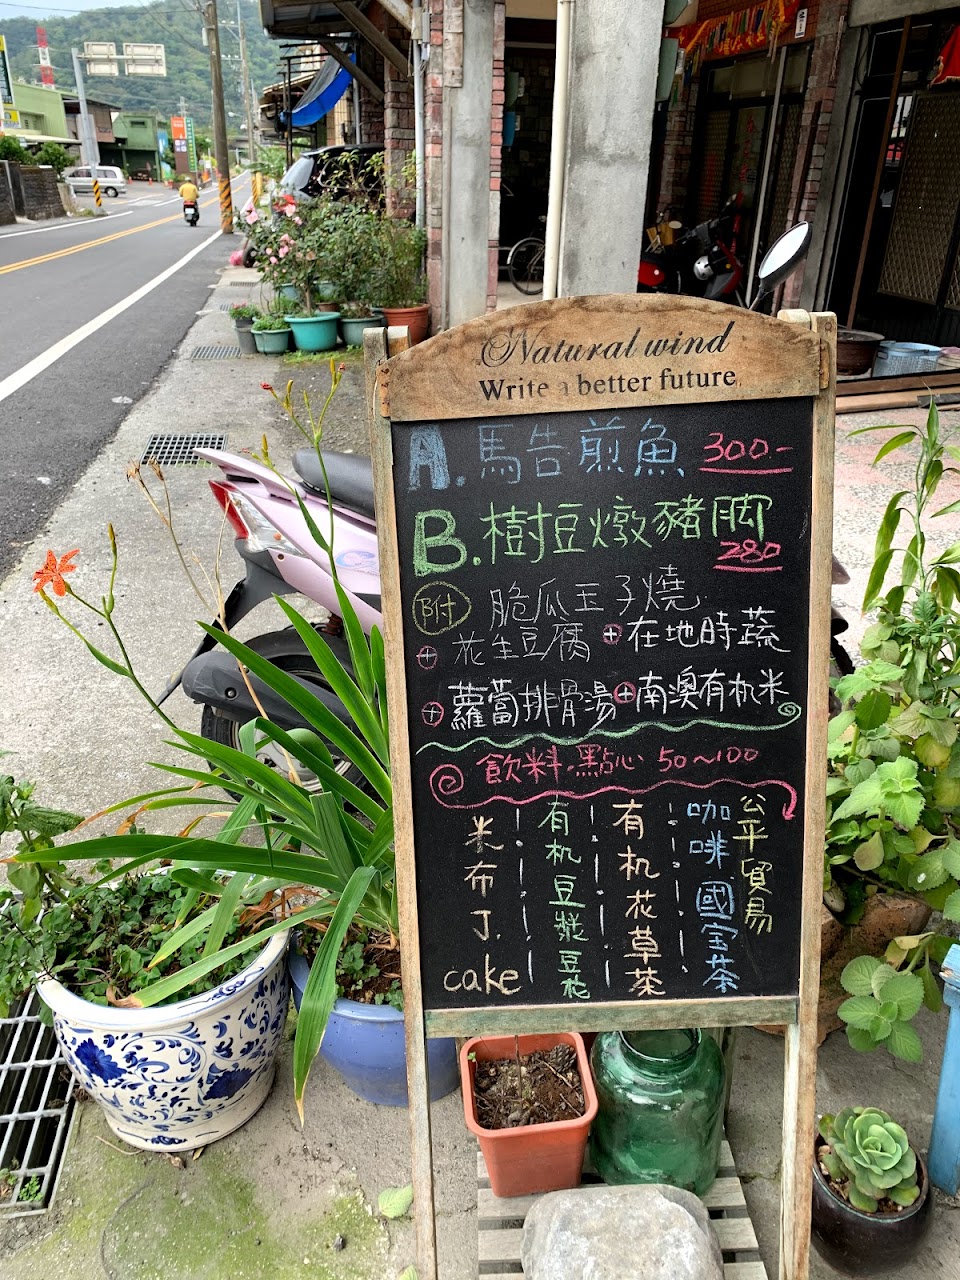 Natural wind
Write a better future
A.馬告煎魚 300-
B.樹豆燉豬脚 280
附 脆瓜玉子燒
+花生豆腐 +在地時蔬
+蘿蔔排骨湯 +南澳有机米
飲料.點心 50~100
公平貿易
咖啡 國宝茶
有机花草茶
有机豆漿豆花
米布丁.
cake